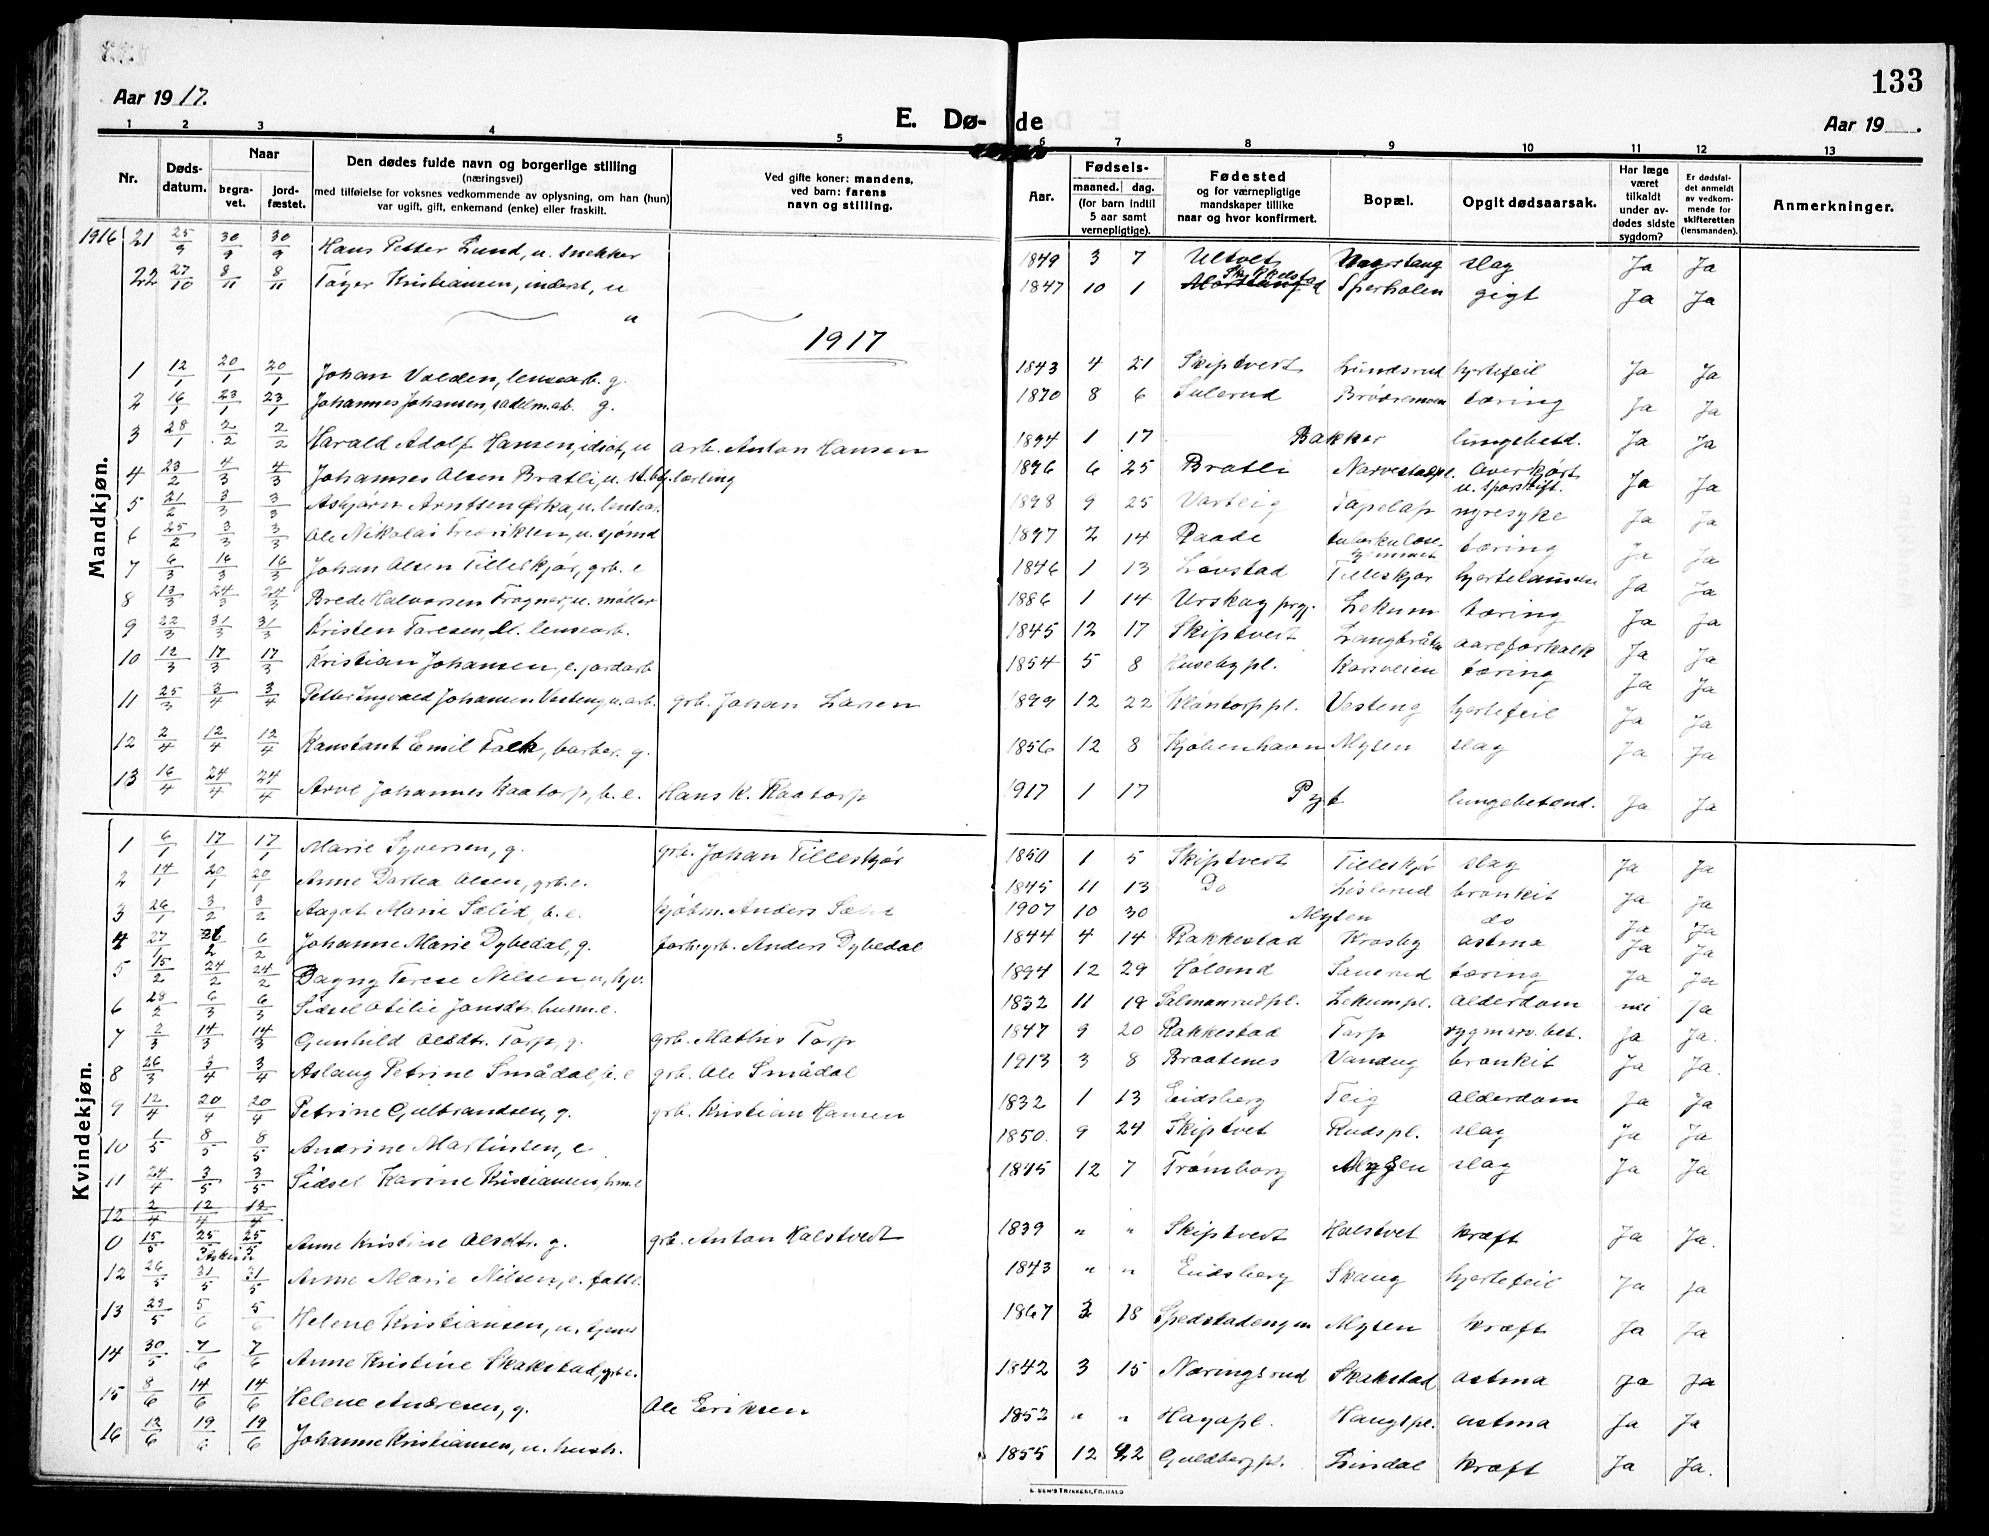 133
Aar 19 17.
E. Dø- de
Aar 19 .
1 2 3 4 5 6 7 8 9 10 11 12 13
Nr. Døds-datum. Naar begravet. jordfæstet. Den dødes fulde navn og borgerlige stilling (næringsvei) med tilføielse for voksnes vedkommende av oplysning, om han (hun) var ugift, gift, enkemand (enke) eller fraskilt. Ved gifte koner: mandens, ved barn: farens navn og stilling. Aar. Fødsels- maaned. dag. (for barn indtil 5 aar samt vernepligtige). Fødested og for værnepligtige mandskaper tillike naar og hvor konfirmert. Bopæl. Opgit dødsaarsak. Har læge været tilkaldt under avdødes sidste sygdom? Er dødsfaldet anmeldt av vedkommende for skifteretten (lensmanden). Anmerkninger.
Mandkjøn.
1916 21 25/9 30/9 30/9 Hans Petter Lund, u. snekker 1849 3 7 Ultvet slag Ja Ja
22 27/10 8/11 8/11 Tøger Kristiansen, inderst, u 1847 10 1 Sperholen gigt Ja Ja
"
1917
1 12/1 20/1 20/1 Johan Volden, lensearb. g. 1843 4 21 Skiptvet Lundsrud hjertefeil Ja Ja
2 16/1 23/1 23/1 Johannes Johansen, sadelm.arb. g. 1870 8 6 Sulerud Brødremoen tæring Ja Ja
3 28/1 2/2 2/2 Harald Adolf Hansen, idiot, u arb. Anton Hansen 1894 1 17 Bakker lungebetd. Ja Ja
4 23/2 4/3 4/3 Johannes Olsen Bratli, u. st.bg. lærling 1896 6 25 Bratli Narvestadpl. Overkjørt u. sporskift. Ja Ja
5 21/2 3/3 3/3 Asbjørn Arntsen Ørka, u. lensear. 1898 9 25 Varteig Tapelap nyresyke Ja Ja
6 25/2 3/3 3/3 Ole Nikolai Fredriksen, u. sjømd 1897 2 14 Raade tuberkulosehjemmet tæring Ja Ja
7 6/3 16/3 16/3 Johan Olsen Tilleskjør, grb. e 1846 1 13 Løvstad Tilleskjør Ja Ja
8 13/3 24/3 24/3 Brede Halvorsen Frogner, u. møller 1886 1 14 Urskog prgj. Lekum tæring Ja Ja
9 22/3 31/3 31/3 Kristen Taresen, lensearb. 1845 12 17 Skiptvet Langbråten aareforkalk Ja Ja
10 12/3 17/3 17/3 Kristian Johansen, e. jordarb 1854 5 8 Husebypl. Korsveien tæring Ja Ja
11 25/3 3/4 3/4 Petter Ingvald Johansen Vesteng u. arb. grb. Johan Larsen 1899 12 22 Kløntorppl. Vesteng hjertefeil Ja Ja
12 2/4 12/4 12/4 Konstant Emil Falk, barber. g. 1856 12 8 Kjøbenhavn Mysen slag Ja Ja
13 16/4 24/4 24/4 Arve Johannes Kaatorp, b. e. Hans K. Kaatorp 1917 1 17 Pyt lungebetænd. Ja Ja
Kvindekjøn.
1 6/1 17/1 17/1 Marie Syversen, g. grb. Johan Tilleskjør 1850 1 5 Skiptvedt Tilleskjør slag Ja Ja
2 14/1 20/1 20/1 Anne Dortea Olsen, grb. e. 1845 11 13 Do Lislerud bronkit Ja Ja
3 26/1 3/2 3/2 Aagot Marie Sælid, b. e. kjøbm. Anders Sælid 1907 10 30 Mysen do Ja Ja
4 27/1 6/2 Johanne Marie Dybedal, g. forh.grb. Anders Dybedal 1844 4 14 Rakkestad Krosby astma Ja Ja
5 15/2 24/2 24/2 Dagny Terese Nilsen u, hjv. 1894 12 29 Høland Sauerud tæring Ja Ja
6 28/2 6/3 6/3 Sidsel Otilie Jonsdtr. husm.e. 1832 11 19 Salmonrudpl. Lekumpl. alderdom nei Ja
7 2/3 14/3 14/3 Gunhild Olsdtr. Torp, g. grb. Mathis Torp 1847 9 20 Rakkestad Torp rygmarv. bet. Ja Ja.
8 26/3 3/4 3/4 Aslaug Petrine Smådal, b. e grb. Ole Smådal 1913 3 8 Braatenes Vandug bronkit Ja Ja.
9 12/4 20/4 20/4 Petrine Gulbrandsen, g. grb. Kristian Hansen 1832 1 13 Eidsberg Teig alderdom Ja Ja
10 1/5 8/5 8/5 Andrine Martinsen, e 1850. 9 24 Skiptvet Rudspl. slag Ja Ja
11 24/4 3/5 3/5 Sidsel Karine Kristiansen, hm.e 1845 12 7 Trømborg Mysen slag Ja Ja
12 2/4 12/4 12/4
0 15/5 25/5 25/5 Askim Anne Kristine Olsdtr. g. grb. Anton Kalstvedt 1839 " " Skiptvedt Kalstvet kræft Ja Ja.
12 26/5 31/5 31/5 Anne Marie Nilsen, e. fattl. 1843 " " Eidsberg Skaug hjertefeil Ja Ja
13 29/5 5/6 5/6 Helene Kristiansen, u. tjenes 1867 3 18 Spedstadengen Mysen kræft Ja Ja
14 30/5 7/6 7/6 Anne Kristine Skakstad, grb e. 1842 3 15 Næringsrud Skakstad astma Ja Ja
15 8/6 14/6 14/6 Helene Andresen, g. Ole Eriksen 1852 " " Hagapl. Haugspl. astma Ja Ja
16 12/6 19/6 19/6 Johanne Kristiansen, u. hush. 1855 12 22 Guldbergpl. Lindal kræft Ja Ja.